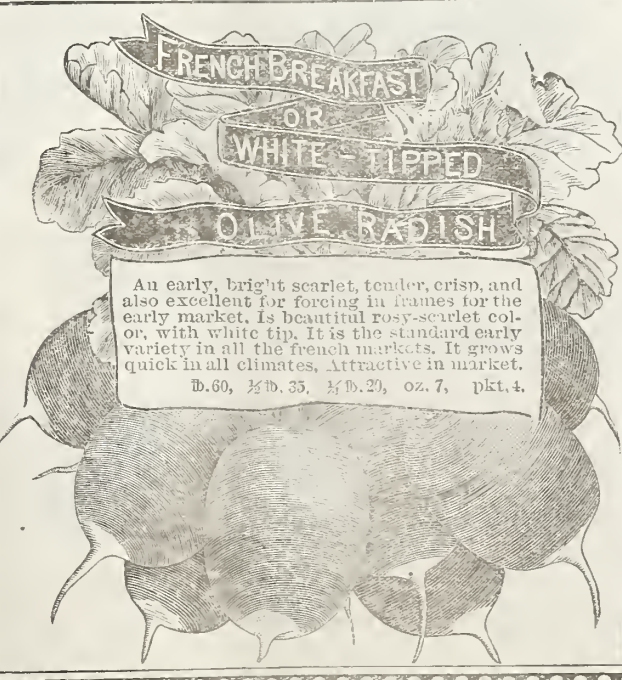 FRENCH BREAKFAST
OR
WHITE-TIPPED
OLIVE RADISH
An early, bright scarlet, tender, crisp, and
also excellent for forcing in frames for the
early market. Is beautiful rosy-scarlet col-
or, with white tip. It is the standard early
variety in all the french markets. It grows
quick in all climates. Attractive in market.
℔.60, ½℔. 35, ¼℔.20, oz. 7, pkt. 4.